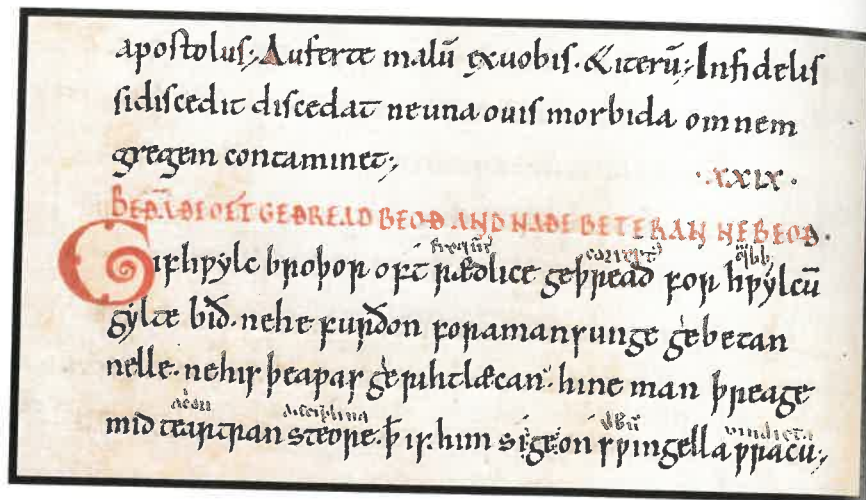 apostolus; Auferte malū exuobis. &iterū; Infidelis
sidiscedit discedat neuna ouis morbida omnem
gregem contaminet;
·XXIX·
BEÐĀ ÐE OFT GEÐREAD BEOÐ AND NAÐE BETERAN NE BEOÐ.
Gif hƿylc broþor oft rædlice geþread for hƿylcū
gylte bið. nehe furðon foramansunge ġebetan
nelle. nehis þeaƿas ġerihtlæcan. hine man þreage
disciplina vindicta
mid teartran steore. ꝥ is. him sigeon sƿingella ƿracu;